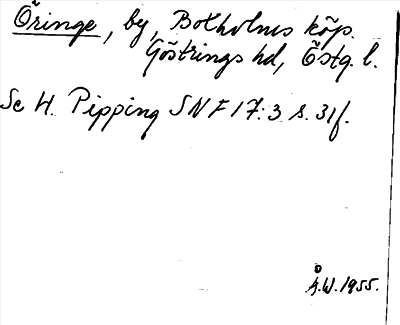 Öringe, by, Boxholms köp.
Göstrings hd, Östg. l.
Se H. Pipping SNF 17:3 s. 31f.
Å.W. 1955.